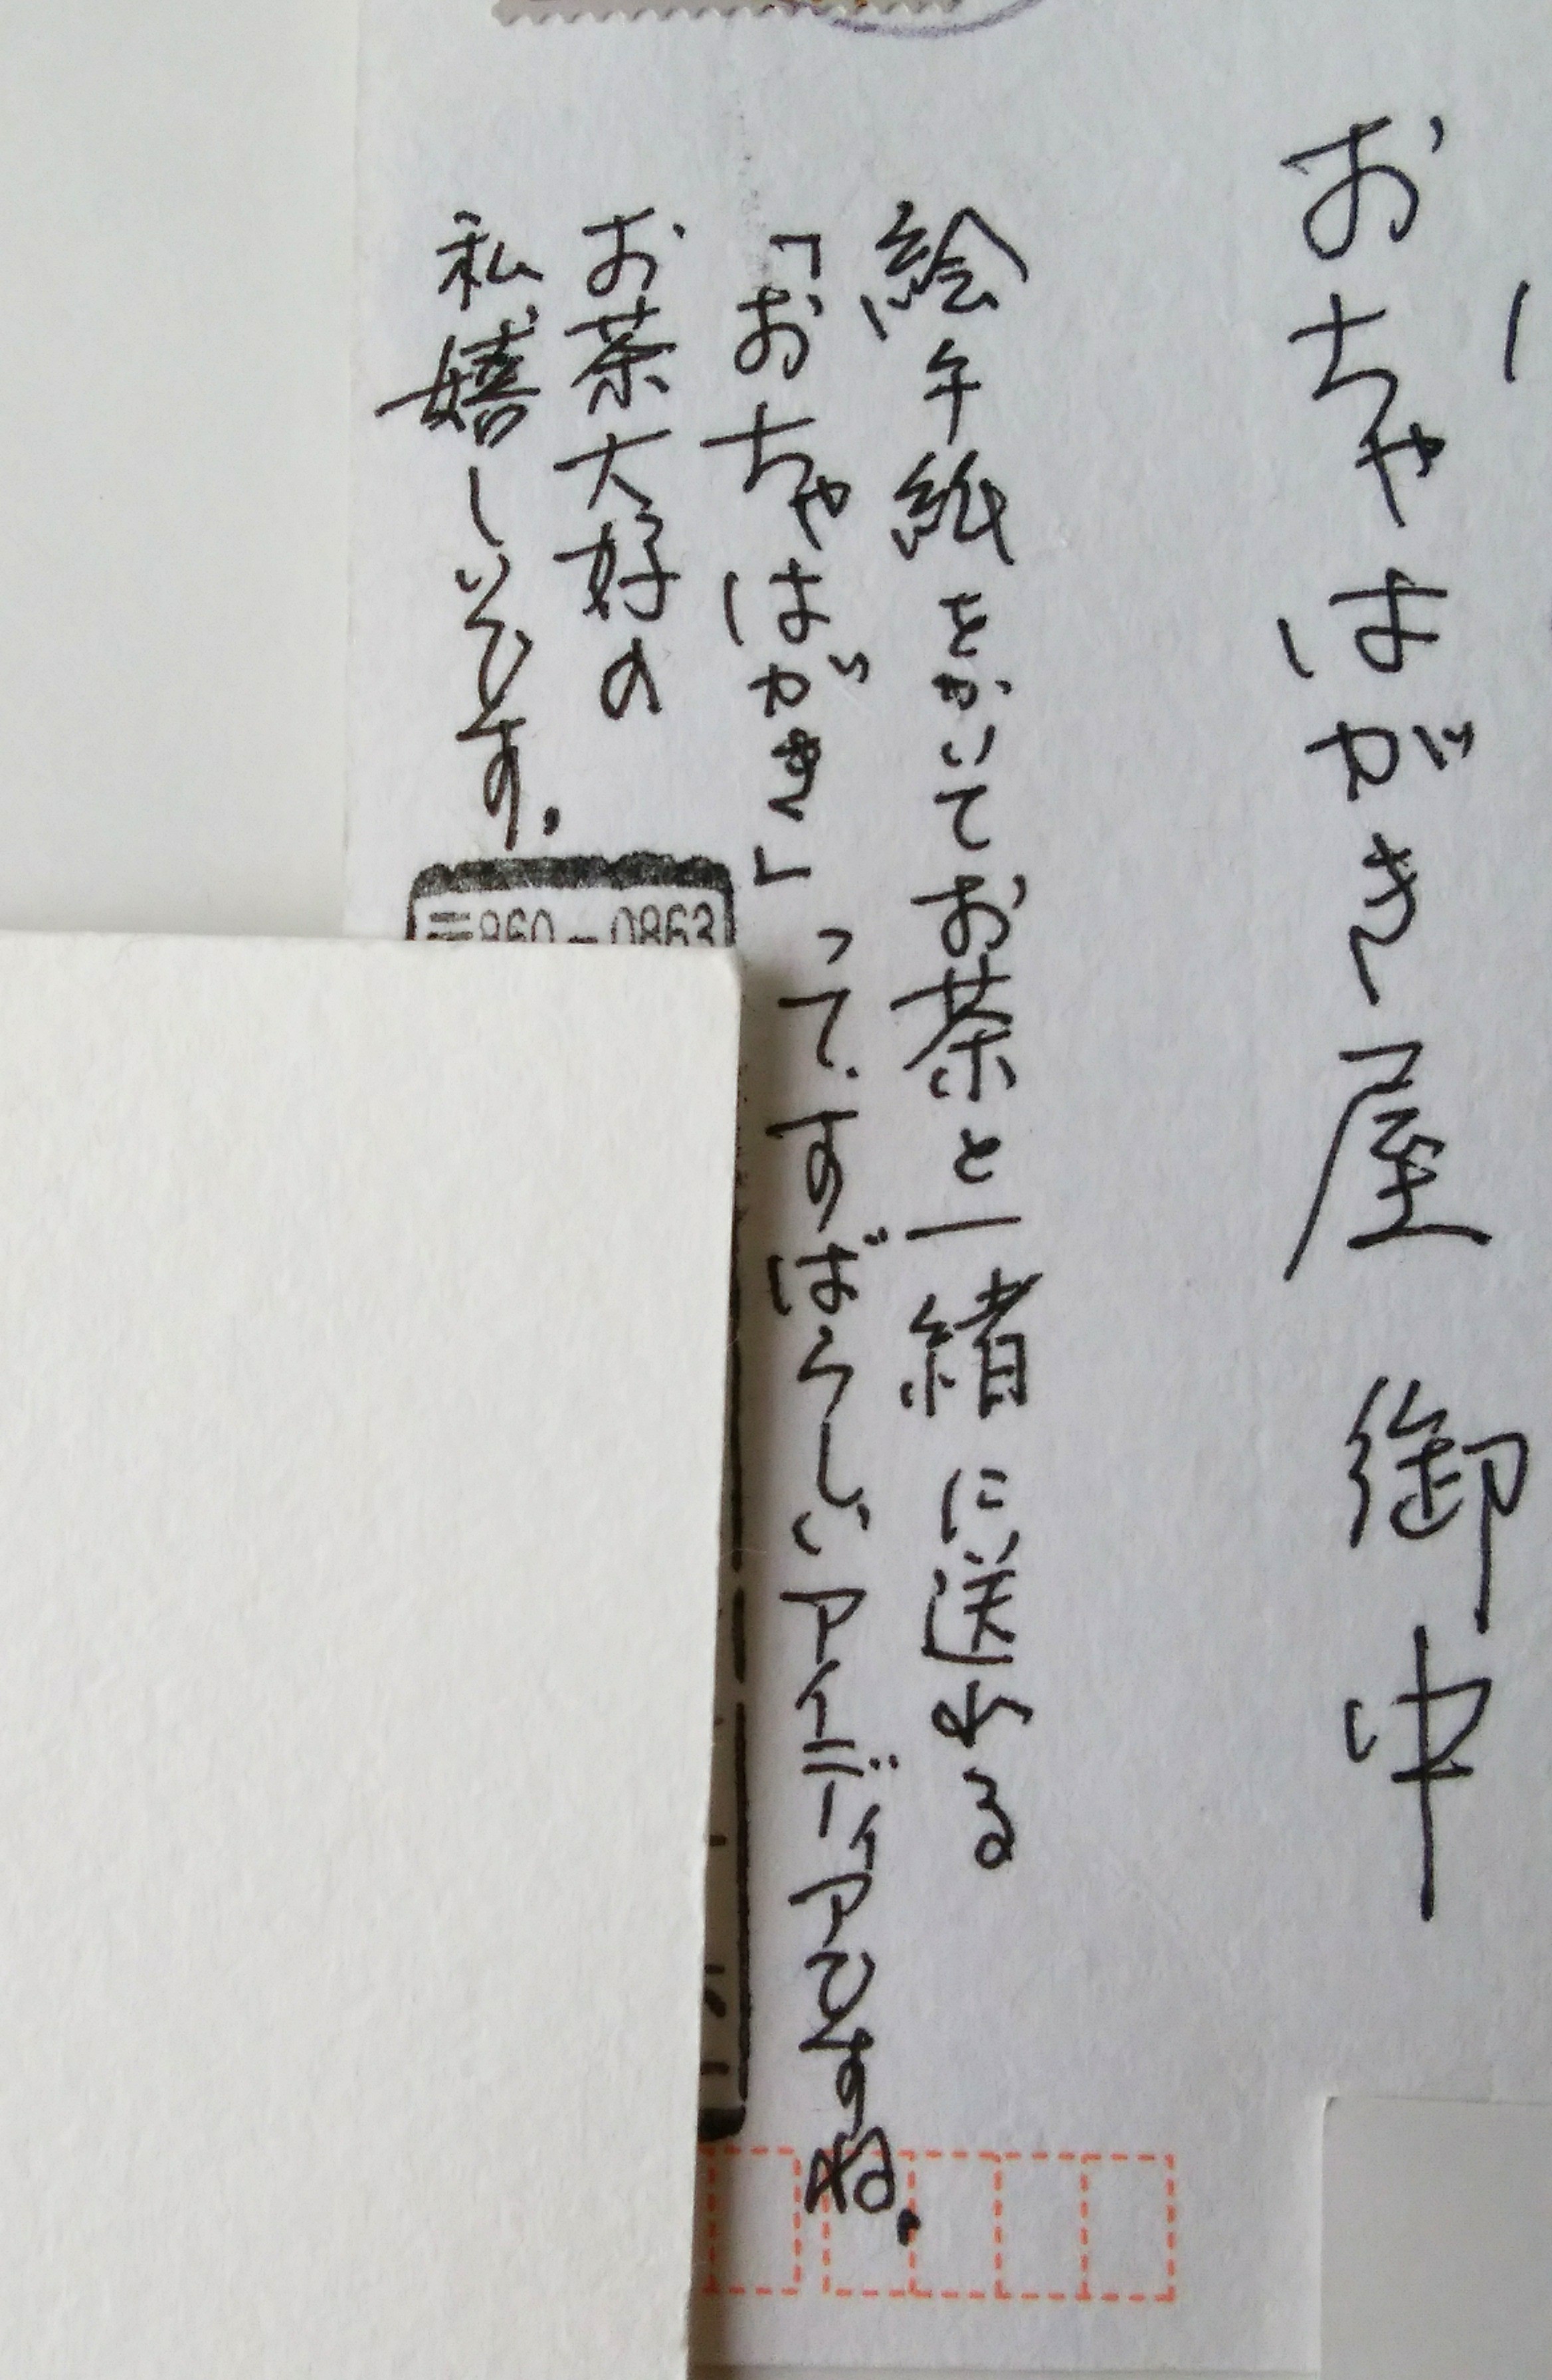 おちゃはがき屋 御中
絵手紙をかいてお茶と一緒に送れる
「おちゃはがき」って、すばらしいアイディアですね。
お茶大好の
私、嬉しいです。
〒860-0863